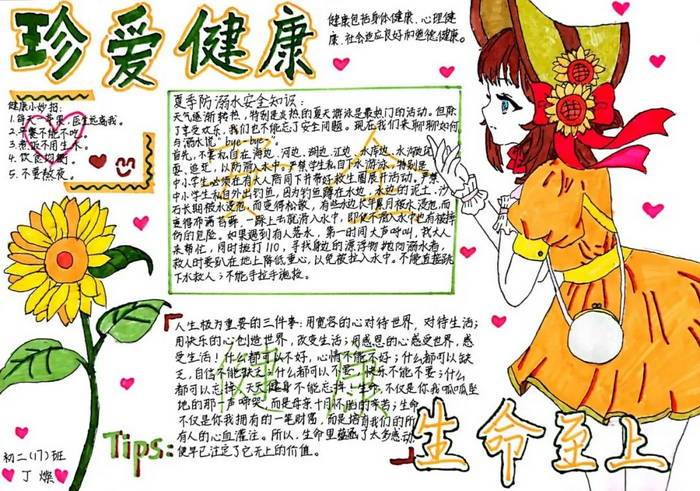 珍爱健康
健康包括身体健康、心理健
康、社会适应良好和道德健康。
健康小妙招:
1.每天一苹果,医生远离我。
2.早餐不能不吃
3.煮饭不用生水
4.饮食均衡
5.不要熬夜。
夏季防溺水安全知识:
天气逐渐转热,特别是炎热的夏天游泳是最热门的活动。但除
了享受欢乐,我们也不能忘了安全问题。现在我们来聊聊如何
与溺水说"bye-bye"
首先,不要私自在海边、河边、湖边、江边、水库边、水沟
边、追逐,以防滑入水中。严禁学生私自下水游泳。特别是
中小学生必须在有大人陪同下并带好救生圈展开活动。严禁
中小学生私自外出钓鱼,因为钓鱼蹲在水边,水边的泥土,沙
石长期被水浸泡,而变得松散,有些水边长年累月被水浸泡,而
重得布满苔藓,一踩上去就滑入水中,即使不滑入水中也有被摔
伤的危险。如果遇到有人落水,第一时间大声呼叫,找大人
来帮忙,同时拨打110,寻找身边的漂浮物抛向溺水者,
救人时要趴在地上降低重心,以免被拉入水中。不能直接跳
下水救人;不能手拉手施救。
人生极为重要的三件事:用宽容的心对待世界,对待生活;
用快乐的心创造世界,改变生活;用感恩的心感受世界,感
受生活!什么都可以不好,心情不能不好;什么都可以缺
乏,自信不能缺乏;什么都可以不要,快乐不能不要;什么
都可以忘掉,天天健身不能忘掉!生命,不仅是你我呱呱坠
地的那一声啼哭,而是母亲十月怀胎的辛苦;生命,
不仅是你我拥有的一笔财富,而是培育我们的所
有人的心血灌注。所以,生命里蕴涵了太多感动,
便早已注定了它无上的价值。
健康
Tips:
生命至上
初二(17)班
丁燦